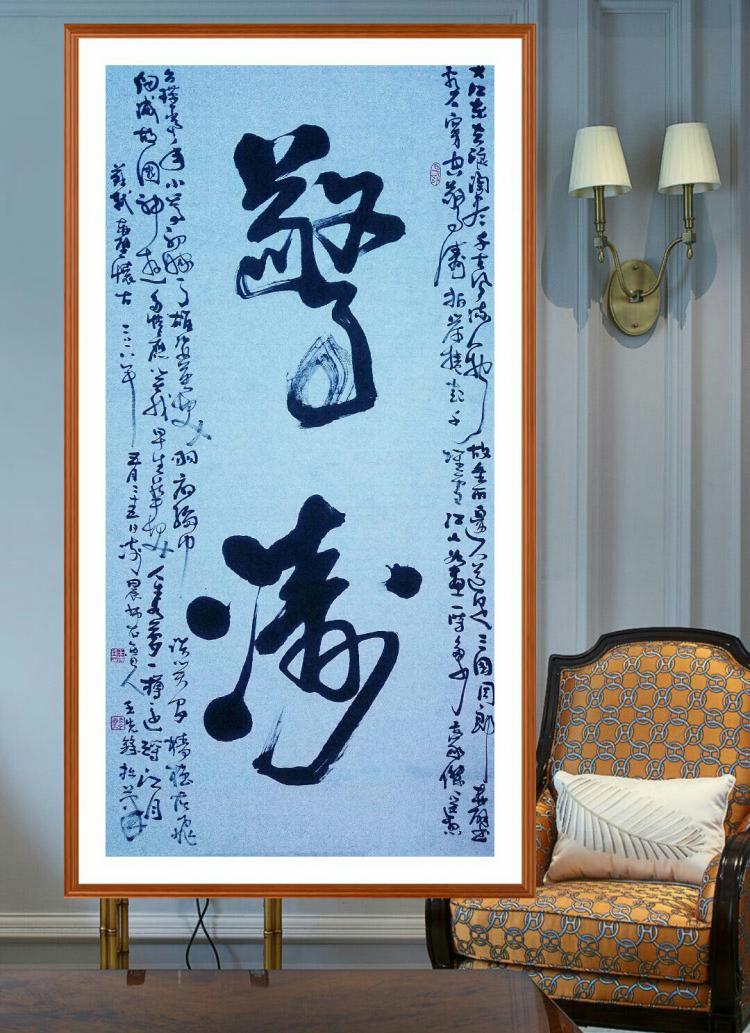 大江东去浪淘尽千古风流人物故垒西边人道是三国周郎赤壁
乱石穿空惊涛拍岸卷起千堆雪江山如画一时多少豪杰遥想
驚濤
公瑾当年小乔初嫁了雄姿英发羽扇纶巾谈笑间樯橹灰飞
烟灭故国神游多情应笑我早生华发人生如梦一樽还酹江月
苏轼赤壁怀古 五月二十五日